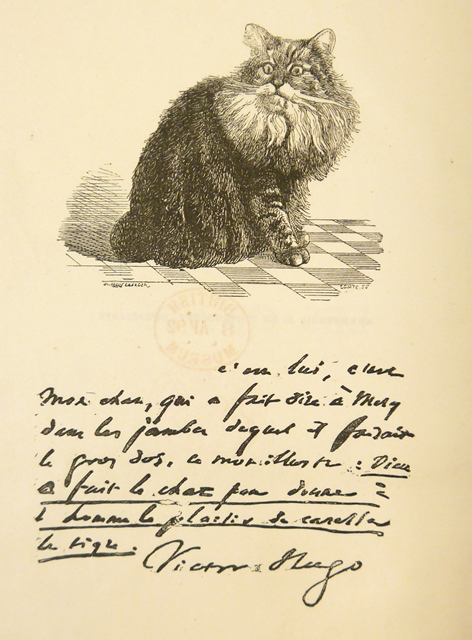 BRITISH
8 AP 92
MUSEUM
c'est lui, c'est
mon chat, qui a fait dire à Mery
dans les jambes duquel il faisait
le gros dos, ce mot illustre : Dieu
a fait le chat pour donner à
l'homme le plaisir de caresser
le tigre.
Victor Hugo